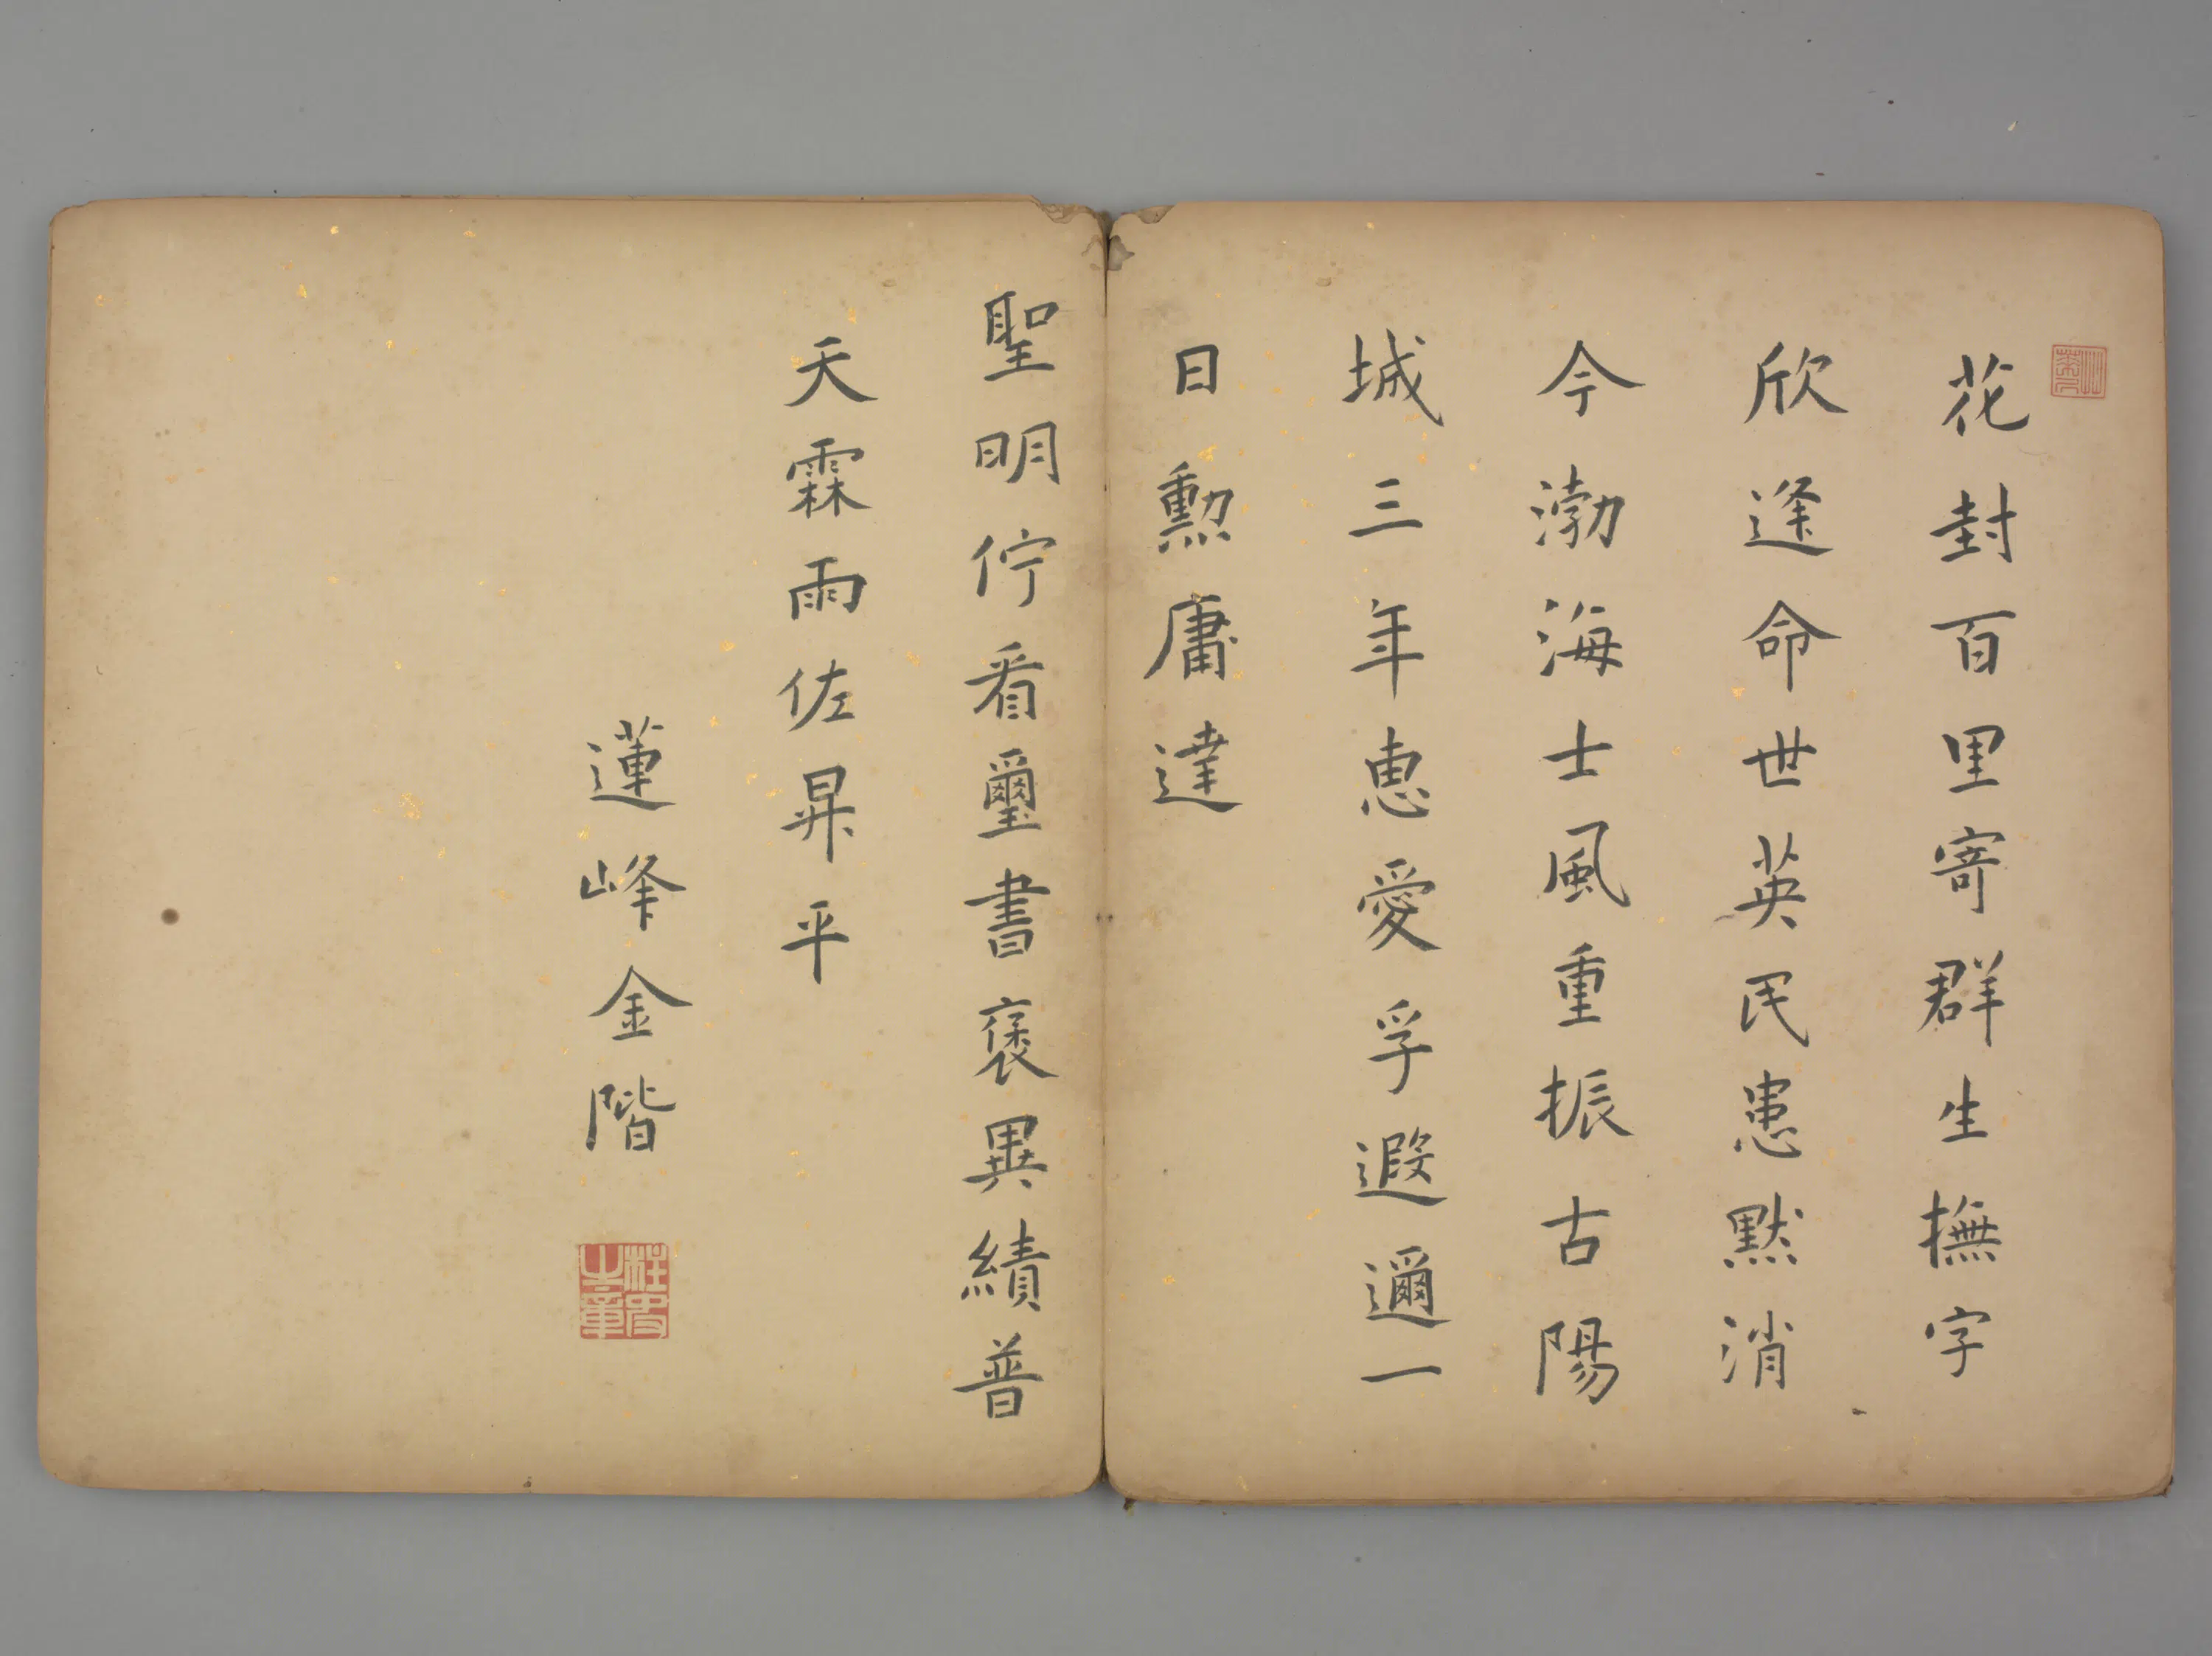 花封百里寄群生撫字
欣逢命世英民患默消
今渤海士風重振古陽
城三年惠愛孚遐邇一
日勲庸達
聖明佇看璽書褒異績普
天霖雨佐昇平
蓮峰金階
柱史之章